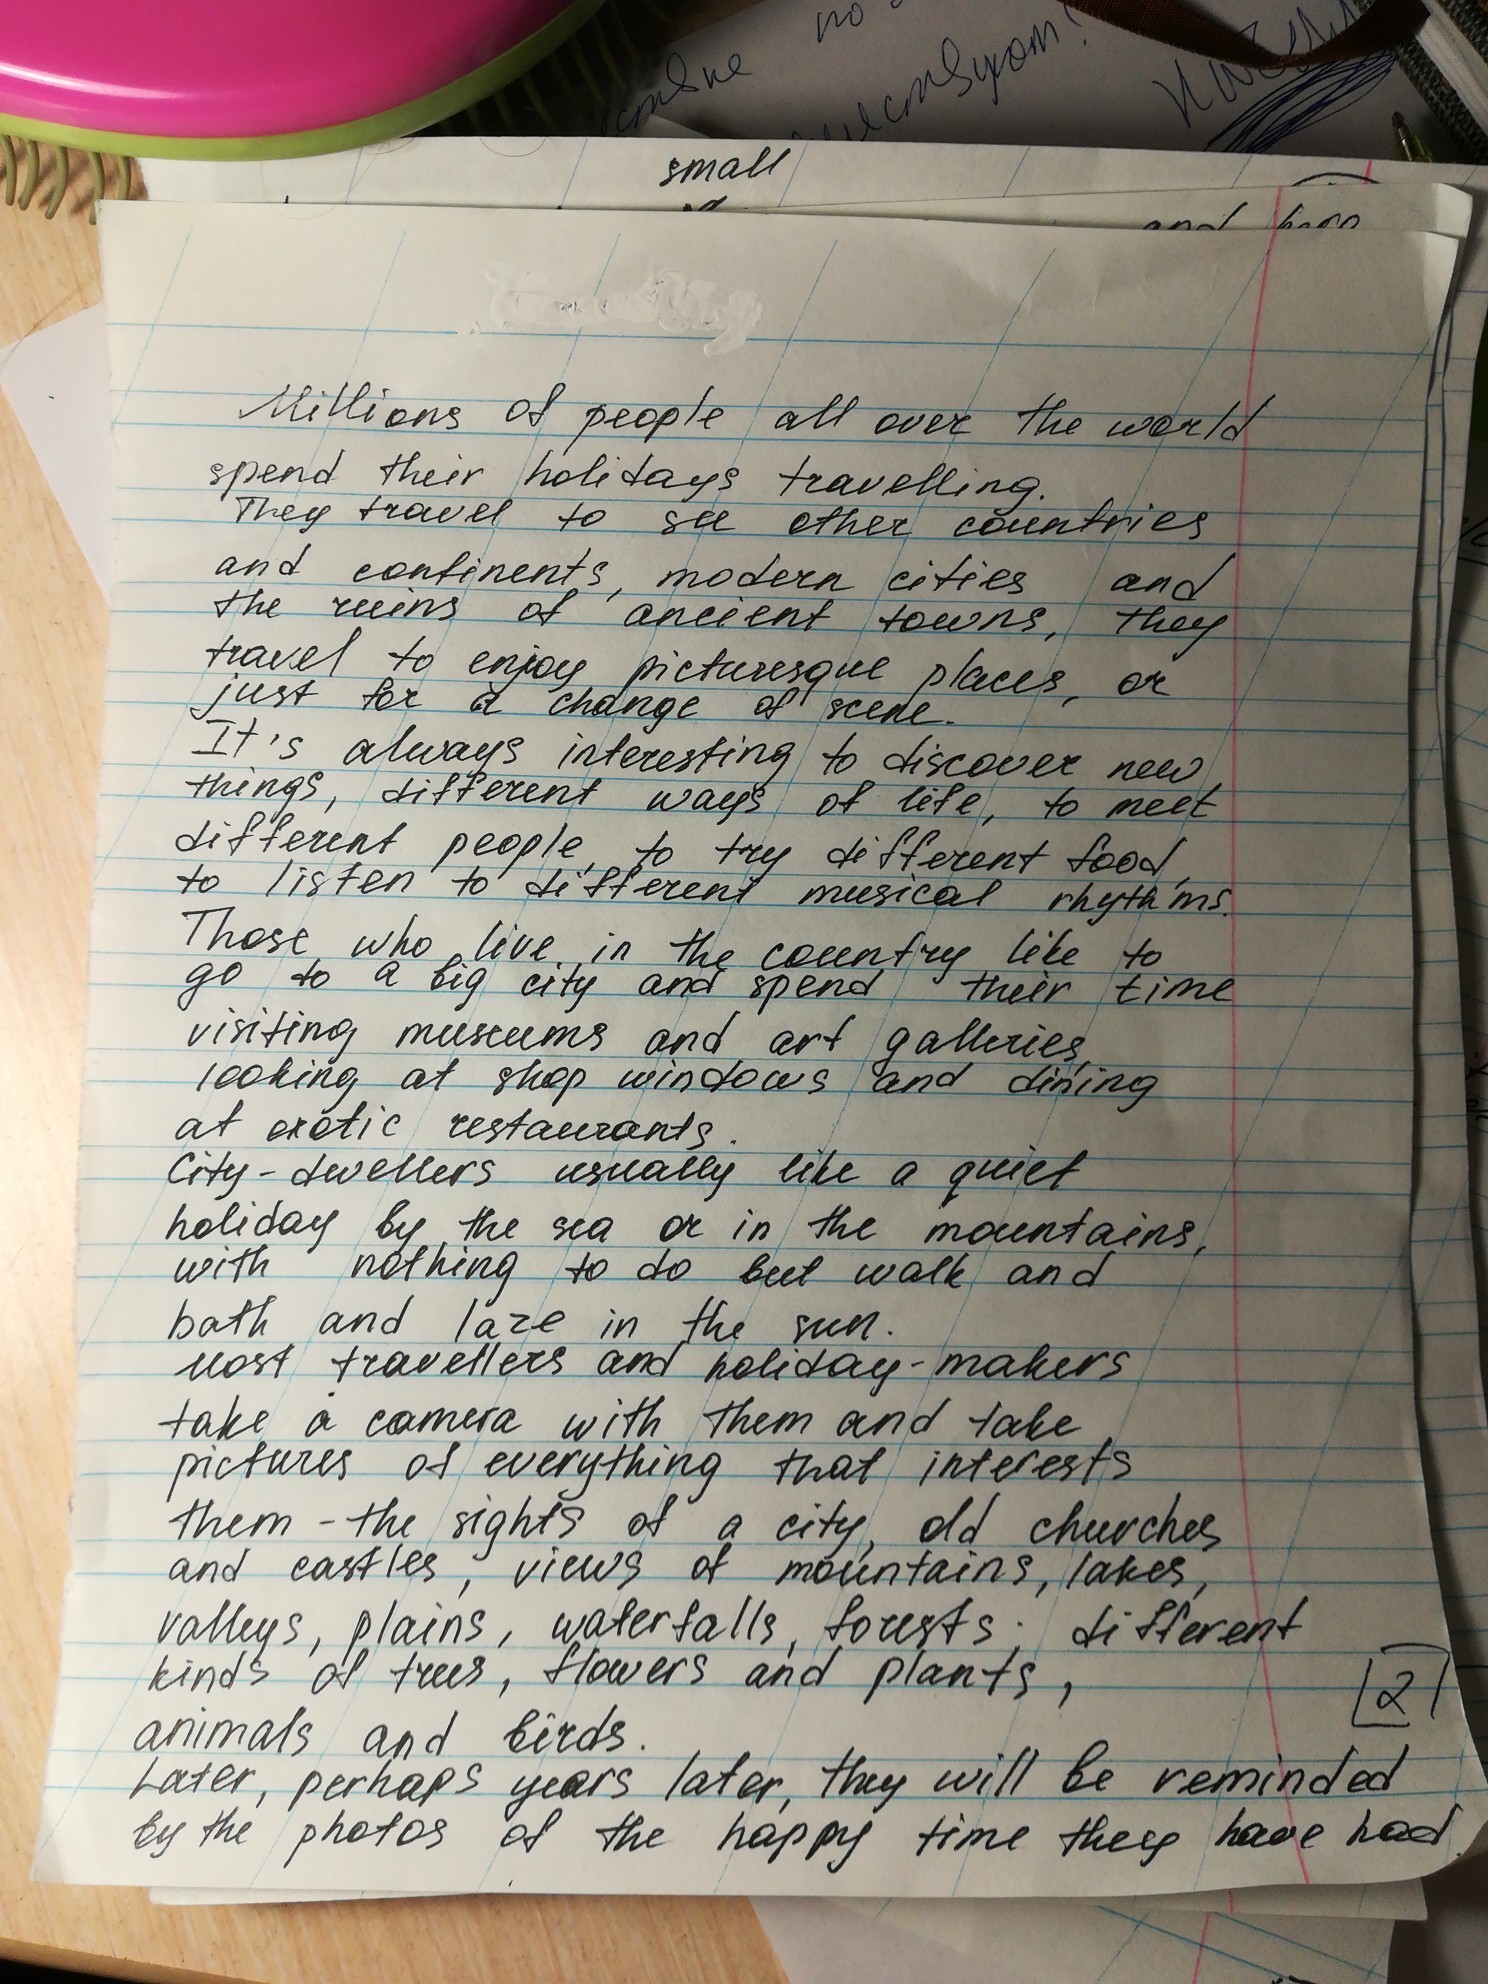 small
Millions of people all over the world
spend their holidays travelling.
They travel to see other countries
and continents, modern cities and
the ruins of ancient towns, they
travel to enjoy picturesque places, or
just for a change of scene.
It's always interesting to discover new
things, different ways of life, to meet
different people, to try different food,
to listen to different musical rhythms.
Those who live in the country like to
go to a big city and spend their time
visiting museums and art galleries,
looking at shop windows and dining
at exotic restaurants.
City-dwellers usually like a quiet
holiday by the sea or in the mountains,
with nothing to do but walk and
bath and laze in the sun.
Most travellers and holiday-makers
take a camera with them and take
pictures of everything that interests
them - the sights of a city, old churches
and castles, views of mountains, lakes,
valleys, plains, waterfalls, forests; different
kinds of trees, flowers and plants,
animals and birds.
2
Later, perhaps years later, they will be reminded
by the photos of the happy time they have had.